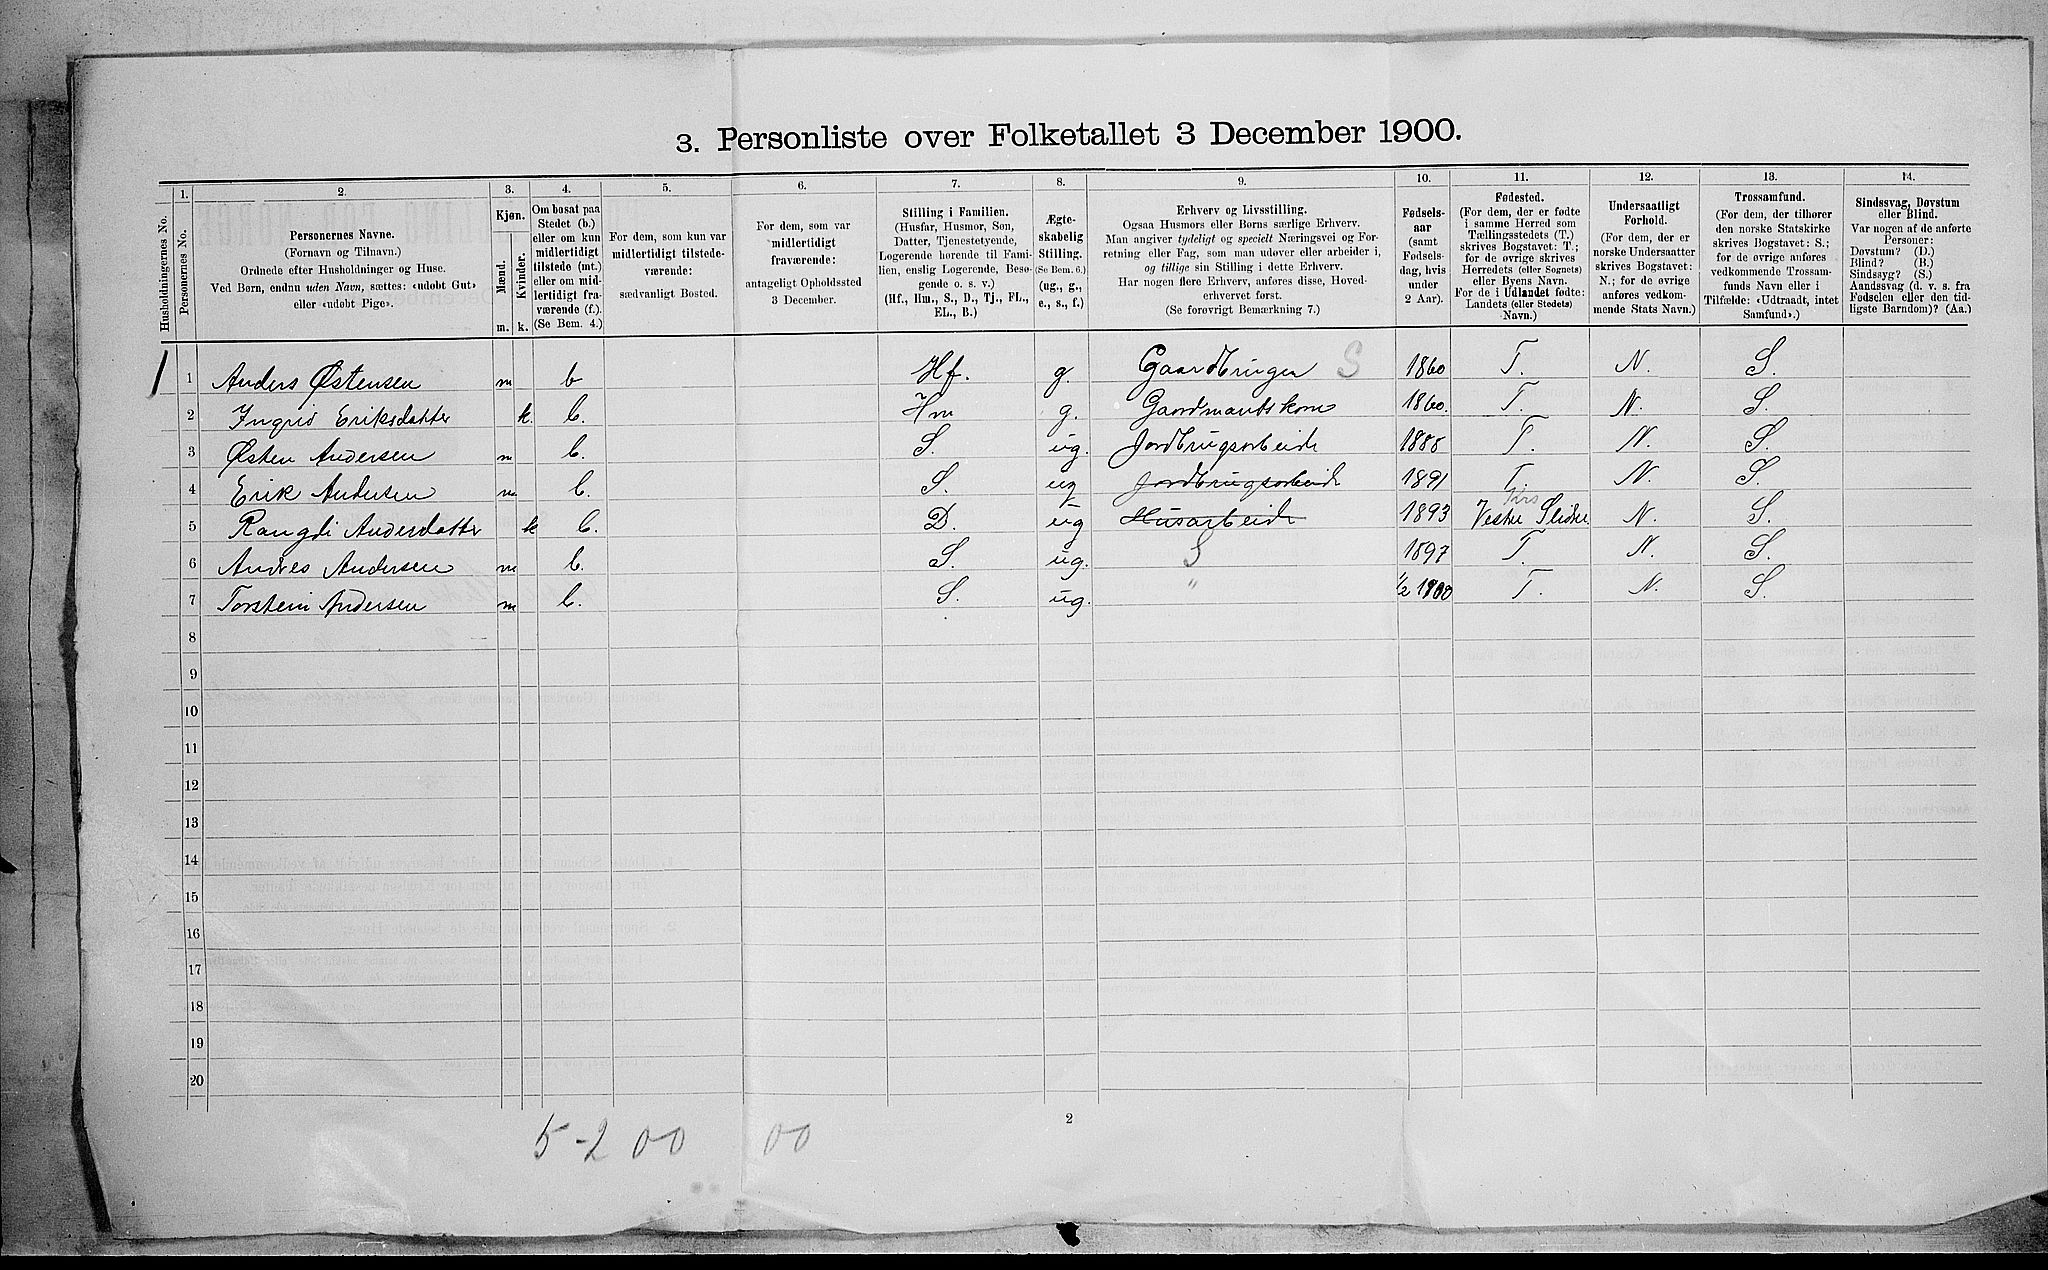 3. Personliste over Folketallet 3 December 1900.
1. 2. 3. 4. 5. 6. 7. 8. 9. 10. 11. 12. 13. 14.
Husholdningernes No.
Personernes No.
Personernes Navne.
(Fornavn og Tilnavn.)
Ordnede efter Husholdninger og Huse.
Ved Børn, endnu uden Navn, sættes: «udøbt Gut»
eller «udøbt Pige».
Kjøn.
Mænd.
Kvinder.
m. k.
Om bosat paa
Stedet (b.)
eller om kun
midlertidigt
tilstede (mt.)
eller om mid-
lertidigt fra-
værende (f.).
(Se Bem. 4.)
For dem, som kun var
midlertidigt tilstede-
værende:
sædvanligt Bosted.
For dem, som var
midlertidigt
fraværende:
antageligt Opholdssted
3 December.
Stilling i Familien.
(Husfar, Husmor, Søn,
Datter, Tjenestetyende,
Logerende hørende til Fami-
lien, enslig Logerende, Besø-
gende o. s. v.)
(Hf., Hm., S., D., Tj., FL.,
EL., B.)
Ægte-
skabelig
Stilling.
(Se Bem. 6.)
(ug., g.,
e., s., f.)
Erhverv og Livsstilling.
Ogsaa Husmors eller Børns særlige Erhverv.
Man angiver tydeligt og specielt Næringsvei og For-
retning eller Fag, som man udøver eller arbeider i,
og tillige sin Stilling i dette Erhverv.
Har nogen flere Erhverv, anføres disse, Hoved-
erhvervet først.
(Se forøvrigt Bemærkning 7.)
Fødsels-
aar
(samt
Fødsels-
dag, hvis
under
2 Aar).
Fødested.
(For dem, der er fødte
i samme Herred som
Tællingsstedets (T.)
skrives Bogstavet: T.;
for de øvrige skrives
Herredets (eller Sognets)
eller Byens Navn.
For de i Udlandet fødte:
Landets (eller Stedets)
Navn.)
Undersaatligt
Forhold.
(For dem, der er
norske Undersaatter
skrives Bogstavet:
N.; for de øvrige
anføres vedkom-
mende Stats Navn.)
Trossamfund.
(For dem, der tilhører
den norske Statskirke
skrives Bogstavet: S.;
for de øvrige anføres
vedkommende Trossam-
funds Navn eller i
Tilfælde: «Udtraadt, intet
Samfund».)
Sindssvag, Døvstum
eller Blind.
Var nogen af de anførte
Personer:
Døvstum? (D.)
Blind? (B.)
Sindssyg? (S.)
Aandssvag (d. v. s. fra
Fødselen eller den tid-
ligste Barndom)? (Aa.)
1 1 Anders Østensen m b Hf. g. Gaardbruger S 1860 T. N. S.
2 Ingrid Eriksdatter k. b. Hm g. Gaardmandskone 1860. T. N. S.
3 Østen Andersen m b. S. ug. Jordbrugsarbeide 1888 T. N. S.
4 Erik Andersen m b. S. ug Jordbrugsarbeide 1891 T. N. S.
5 Rangdi Andersdatter k b. D. ug Husarbeide 1893 Vestre Slidre N. S.
6 Andres Andersen m b. S. ug. S 1897 T. N. S.
7 Torstein Andersen m b. S. ug. " 1/2 1900 T. N. S.
8
9
10
11
12
13
14
15
16
17
18
19
20
2
5-2 00 00